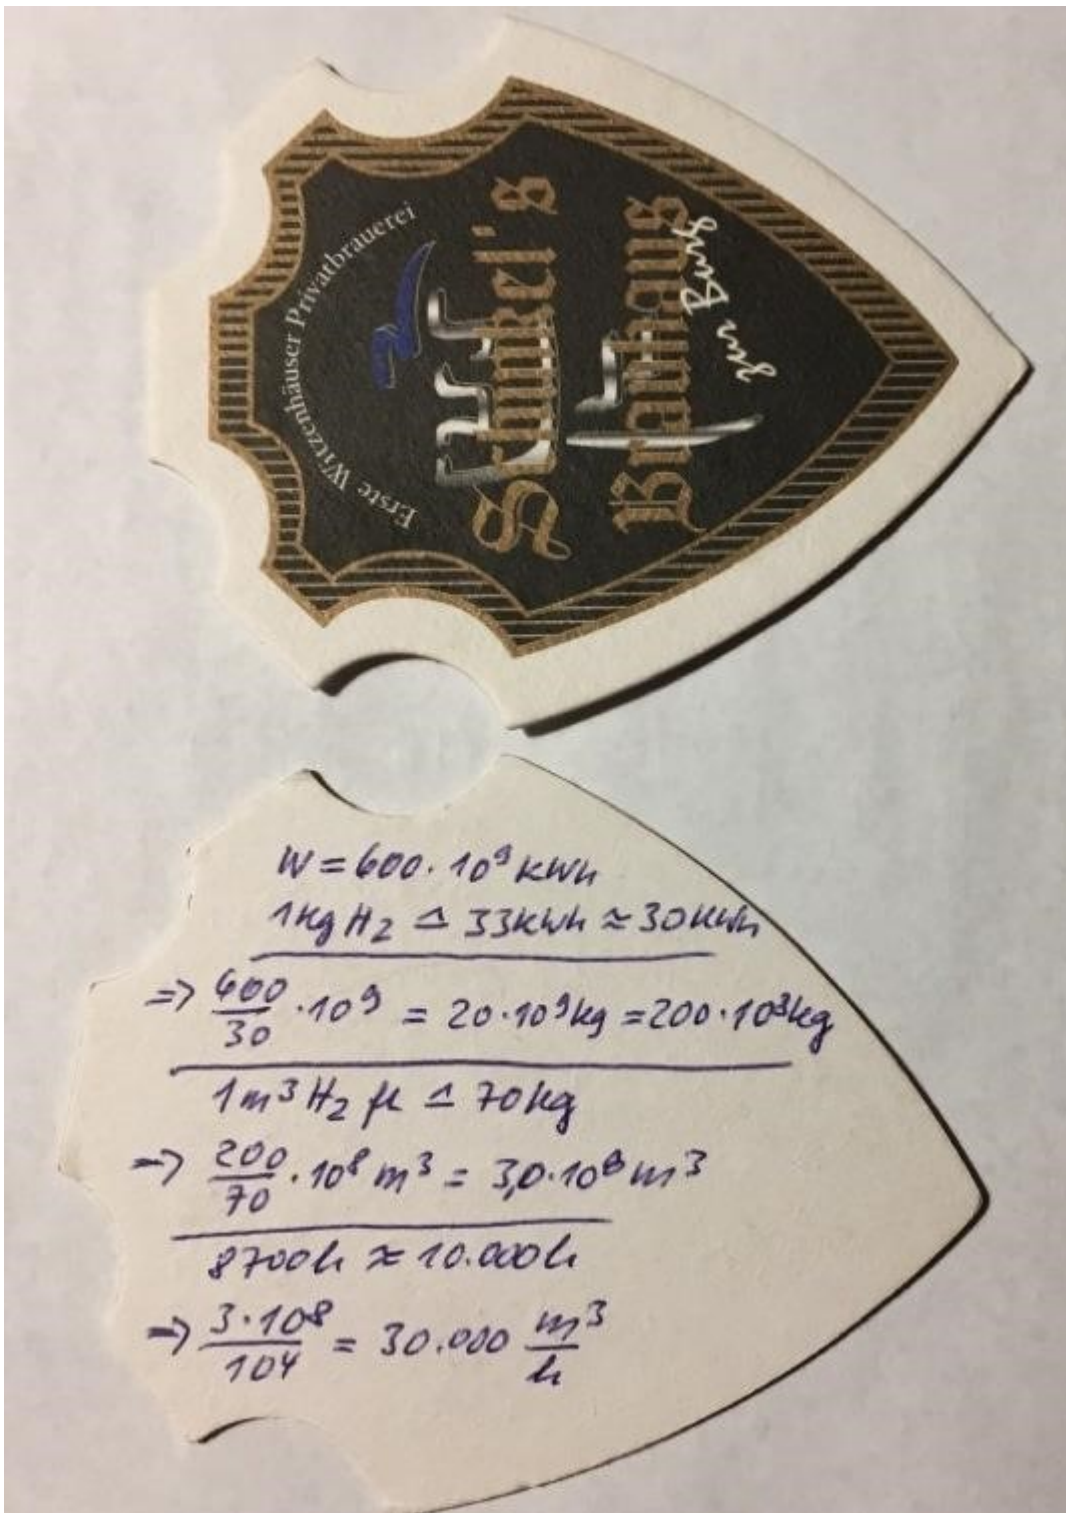 Erste Witzenhäuser Privatbrauerei
Schinkel's
Brauhaus
zur Burg
W = 600 · 10⁹ kWh
1kg H₂ ≙ 33kWh ≈ 30kWh
=> 600/30 · 10⁹ = 20 · 10⁹ kg = 200 · 10⁸ kg
1m³ H₂ fl ≙ 70kg
=> 200/70 · 10⁸ m³ = 3,0 · 10⁸ m³
8700h ≈ 10.000h
=> 3 · 10⁸/10⁴ = 30.000 m³/h